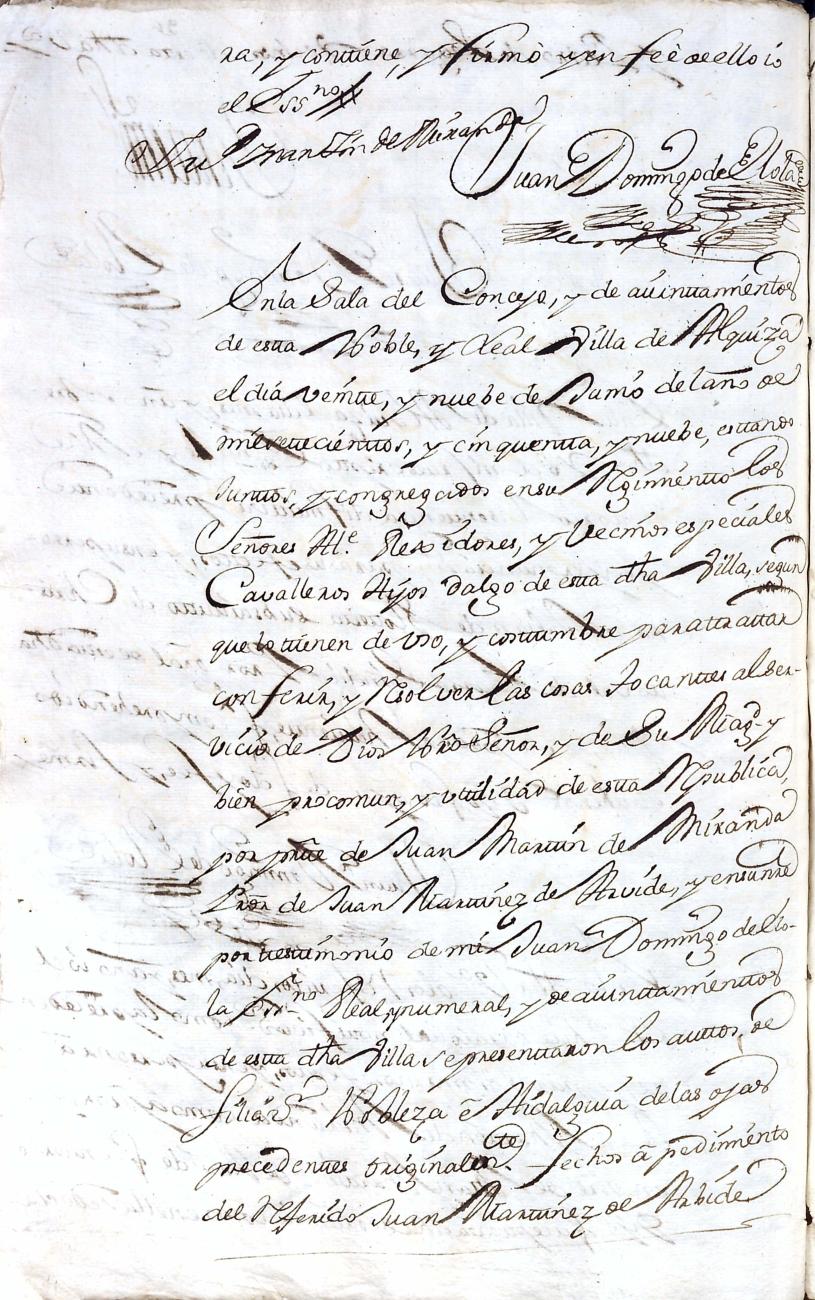 ra, y contiene, y firmò y en feè de ello io
el Essno
Jun Martin de Miranda
Juan Domingo de Elola
En la Sala del Concejo, y de aiuntamientos
de esta Noble, y Leal Villa de Alquiza
el dia veinte, y nuebe de Junio del año de
mil setecientos, y cinquenta, y nuebe, estando
Juntos, y congregados en su Rgimiento los
Señores Ale Rexidores, y Vecinos especiales
Cavalleros Hijos dalgo de esta dha Villa, segun
que lo tienen de vso, y costumbre para trattar
conferir, y Rsolver las cosas tocantes al ser-
vicio de Dios Nro Señor, y de Su Magd y
bien procomun, y vtilidad de esta Rpublica,
por prte de Juan Martin de Miranda
Pror de Juan Martinez de Arvide, y en su nre
por testimonio de mi Juan Domingo de Elo-
la Essno Real, y numeral, y de aiuntamientos
de esta dha Villa se presentaron los auttos, de
filiaron Nobleza è Hidalguia de las ojas
precedentes originalmte fechos à pedimento
del Rferido Juan Martinez de Arbide